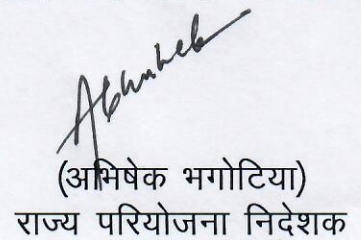 Abhishek
(अभिषेक भगोटिया)
राज्य परियोजना निदेशक